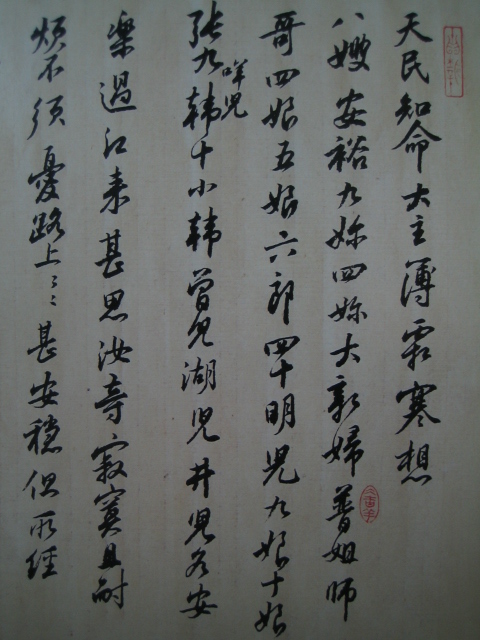 天民知命大主簿霜寒想
八嫂安裕九妳四妳大新婦普姐師
哥四娘五娘六郎四十明兒九娘十娘
張九咩兒韓十小韓曾兒湖兒井兒各安
樂過江來甚思汝等寂寞且耐
煩不須憂路上〻〻甚安穩但所經